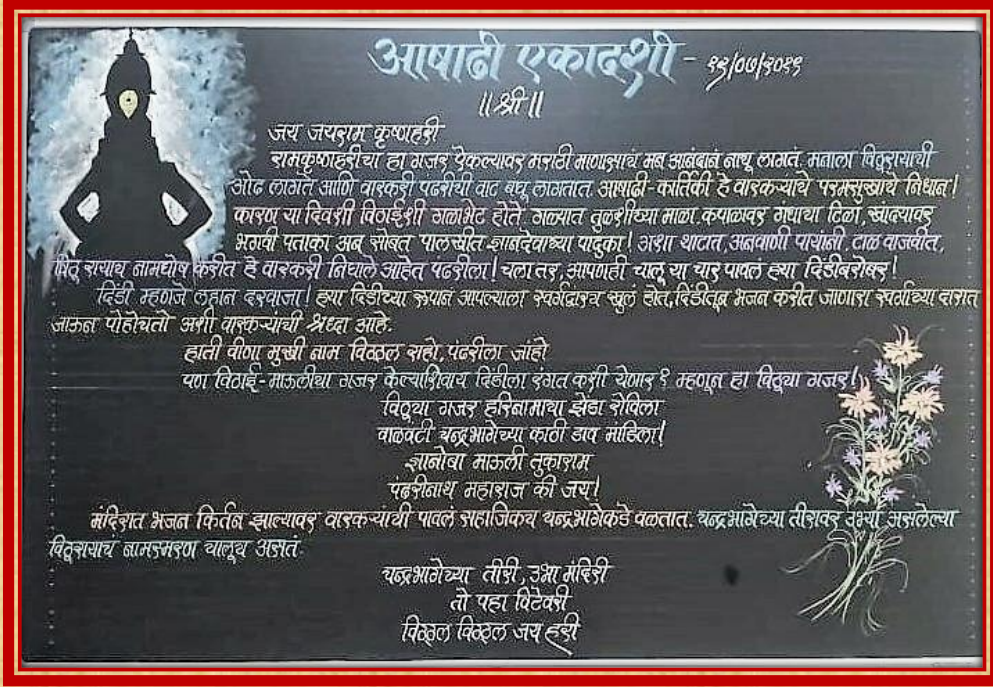 आषाढी एकादशी - १२/०७/२०१९
॥ श्री ॥
जय जयराम कृष्णहरी
रामकृष्णहरीचा हा गजर ऐकल्यावर मराठी माणसाचं मन आनंदानं नाचू लागतं. मनाला विठूरायाची
ओढ लागते आणि वारकरी पंढरीची वाट बघू लागतात आषाढी-कार्तिकी हे वारकऱ्याचे परमसुखाचे निधान!
कारण या दिवशी विठाईशी गळाभेट होते. गळ्यात तुळशीच्या माळा. कपाळावर गंधाचा टिळा, खांद्यावर
भगवी पताका अन् सोबत पालखीत ज्ञानदेवाच्या पादुका! अशा थाटात, अनवाणी पायांनी, टाळ वाजवीत,
विठू रायाच नामघोष करीत हे वारकरी निघाले आहेत पंढरीला! चला तर, आपणही चालू या चार पावलं ह्या दिंडीबरोबर!
दिंडी म्हणजे लहान दरवाजा! ह्या दिंडीच्या रूपानं आपल्याला स्वर्गद्वारच खुलं होतं, दिंडीतून भजन करीत जाणारा स्वर्गाच्या दारात
जाऊन पोहोचतो अशी वारकऱ्यांची श्रध्दा आहे.
हाती वीणा मुखी नाम विठ्ठल राहो, पंढरीला जाहो
पण विठाई-माऊलीचा गजर केल्याशिवाय दिंडीला रंगत कशी येणार? म्हणून हा विठूचा गजर!
विठूचा गजर हरिनामाचा झेंडा रोविला
वाळवंटी चन्द्रभागेच्या काठी डाव मांडिला!
ज्ञानोबा माऊली तुकाराम
पंढरीनाथ महाराज की जय!
मंदिरात भजन किर्तन झाल्यावर वारकऱ्यांची पावलं सहाजिकच चन्द्रभागेकडे वळतात. चन्द्रभागेच्या तीरावर उभ्या असलेल्या
विठूरायाचं नामस्मरण चालूच असतं.
चन्द्रभागेच्या तीरी, उभा मंदिरी
तो पहा विटेवरी
विठ्ठल विठ्ठल जय हरी